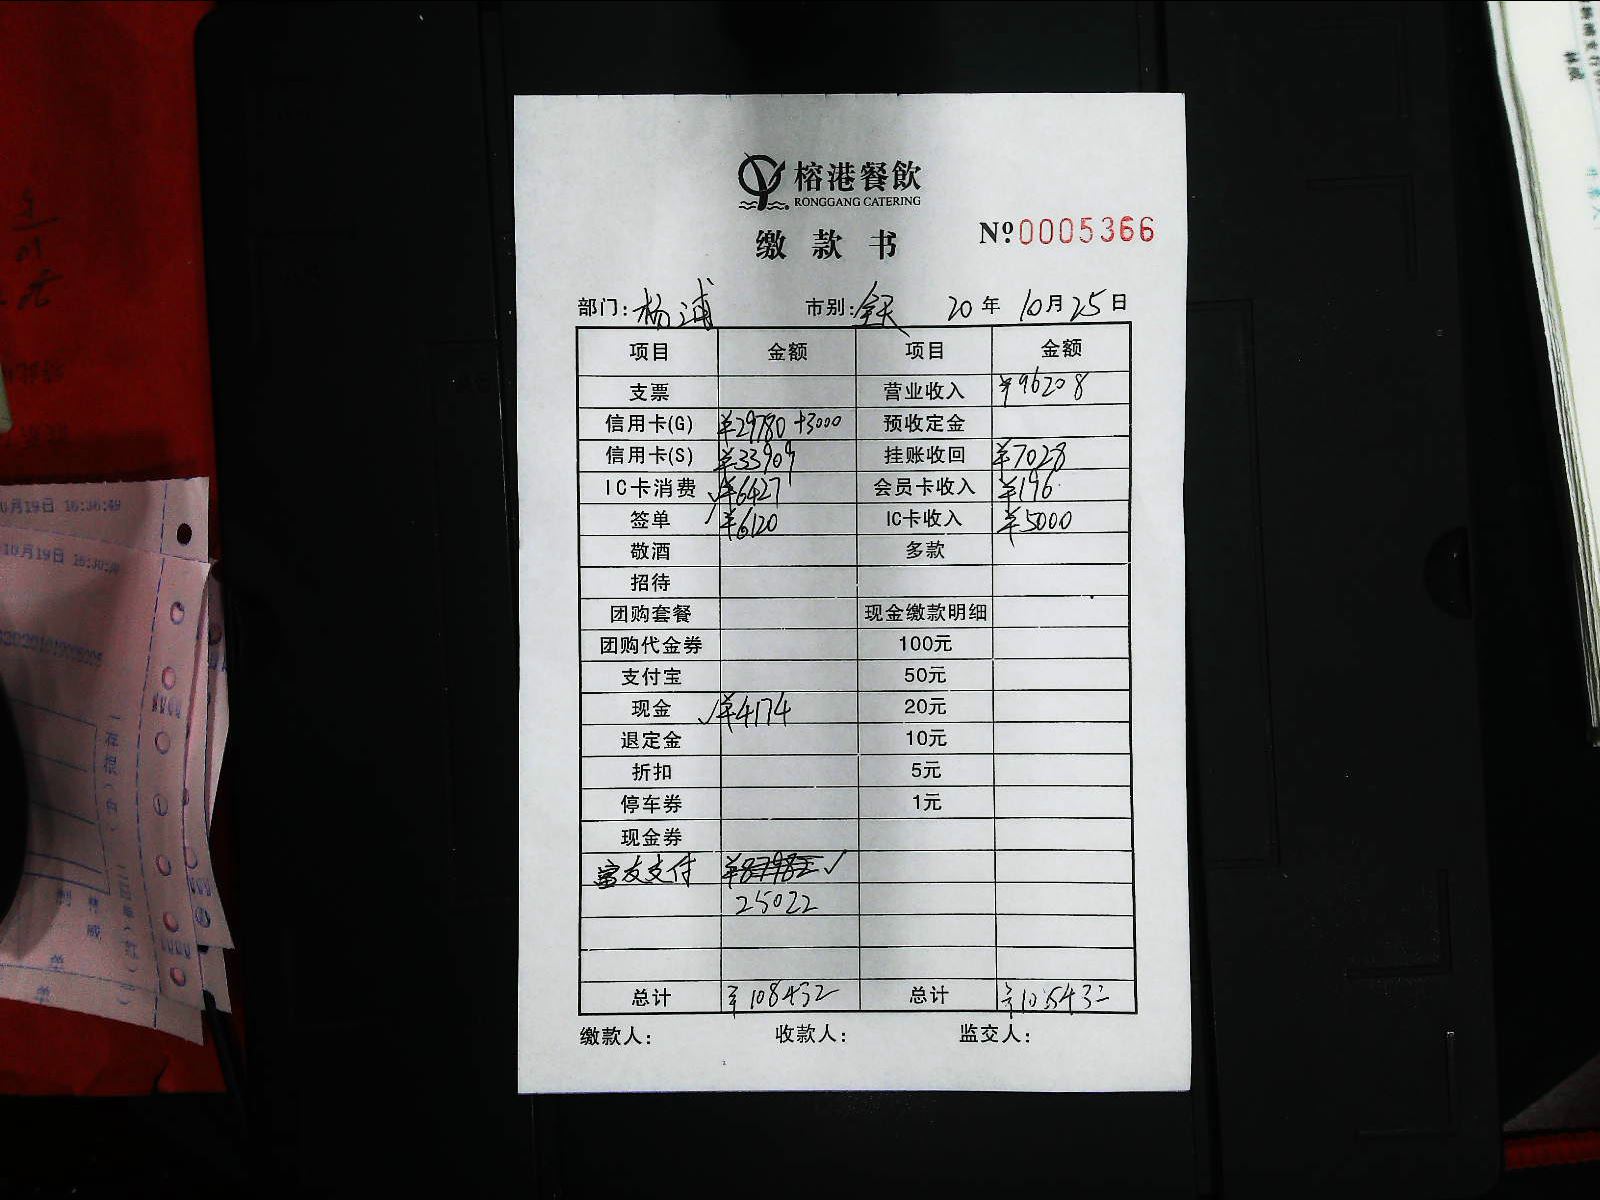 榕港餐飲
RONGGANG CATERING
缴款书
№0005366
部门: 杨浦 市别: 全天 20年 10月25日
项目 金额 项目 金额
支票 营业收入 ¥96208
信用卡(G) ¥29780+3000 预收定金
信用卡(S) ¥33909 挂账收回 ¥7028
IC卡消费 ✓¥6427 会员卡收入 ¥196
签单 ✓¥6120 IC卡收入 ¥5000
敬酒 多款
招待
团购套餐 现金缴款明细
团购代金券 100元
支付宝 50元
现金 ✓¥4174 20元
退定金 10元
折扣 5元
停车券 1元
现金券
友支付 ✓
25022
总计 ¥108432 总计
缴款人: 收款人: 监交人:
10月19日 16:36:49
10月19日